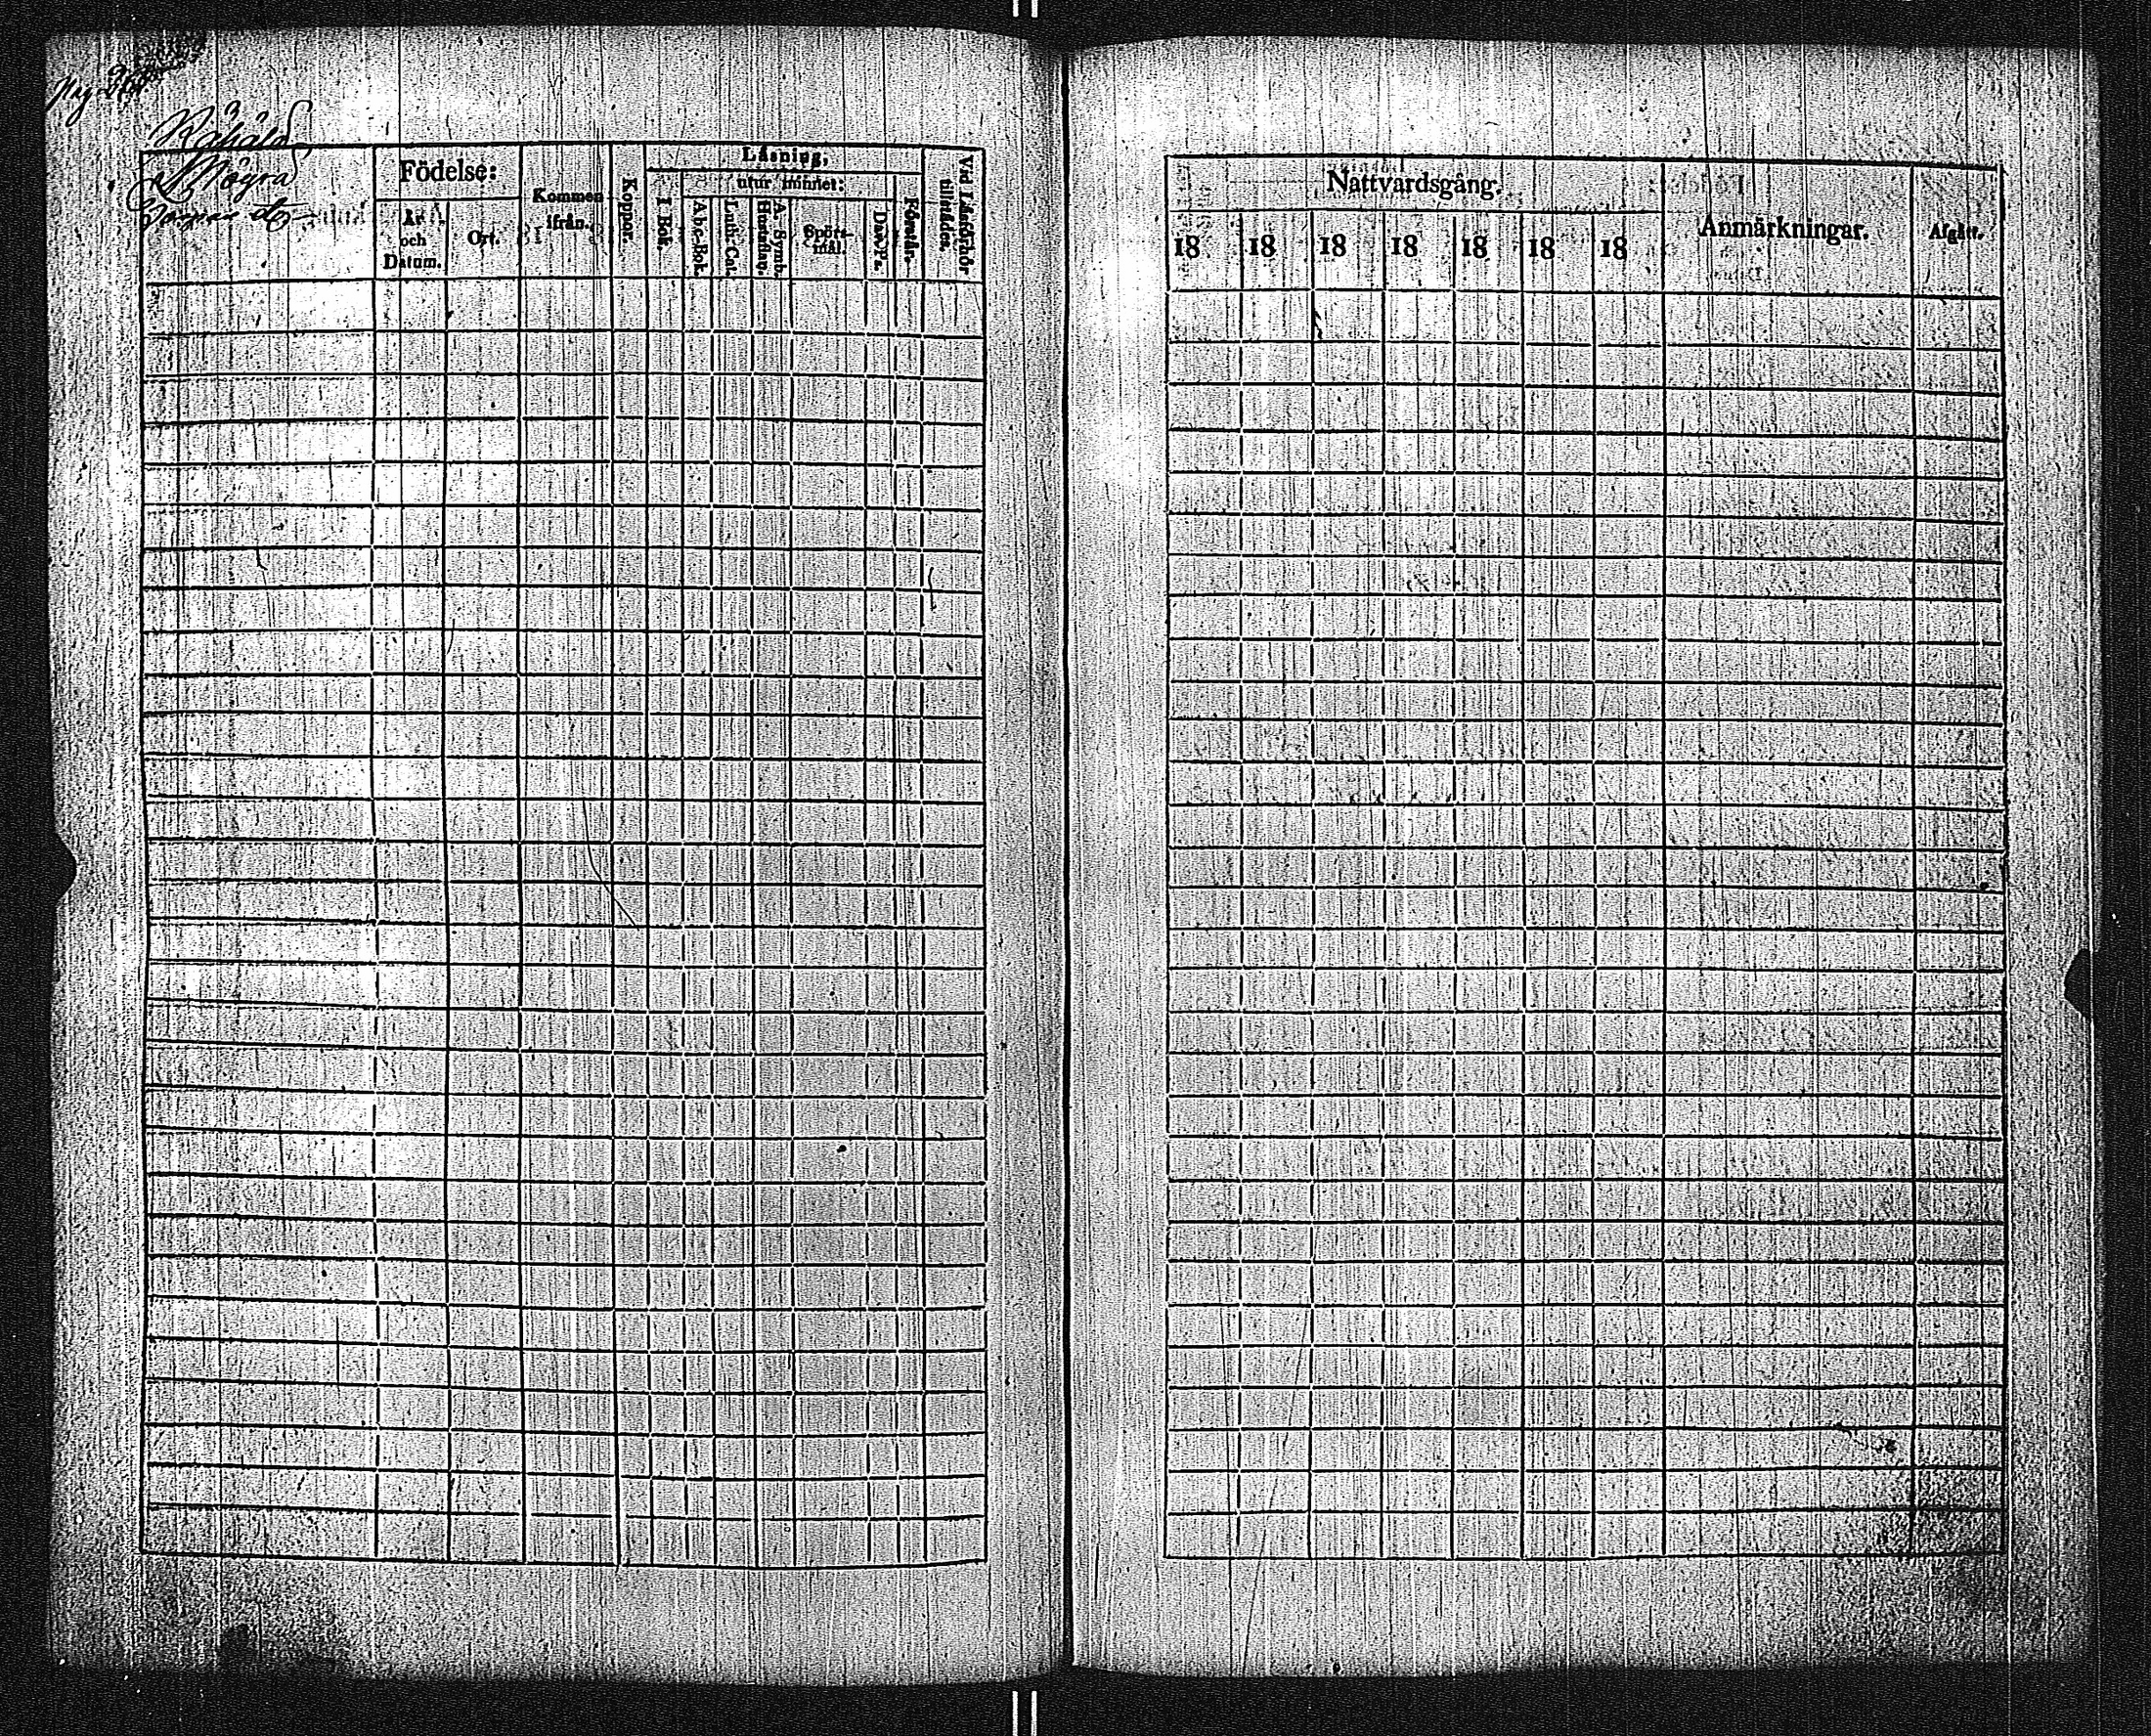 Pag 268.
Födelse:
År
och
Datum.
Ort.
Kommen
ifrån.
Koppor.
Läsning,
utur minnet:
I Bok.
A b c-Bok.
Luth: Cat.
A. Symb.
Hustafl.
Spörs-
mål.
Dav. Ps.
Förstår.
Vid Läsförhör
tillstädes.
Nattvardsgång.
18 18 18 18 18 18 18
Anmärkningar.
Afgått.